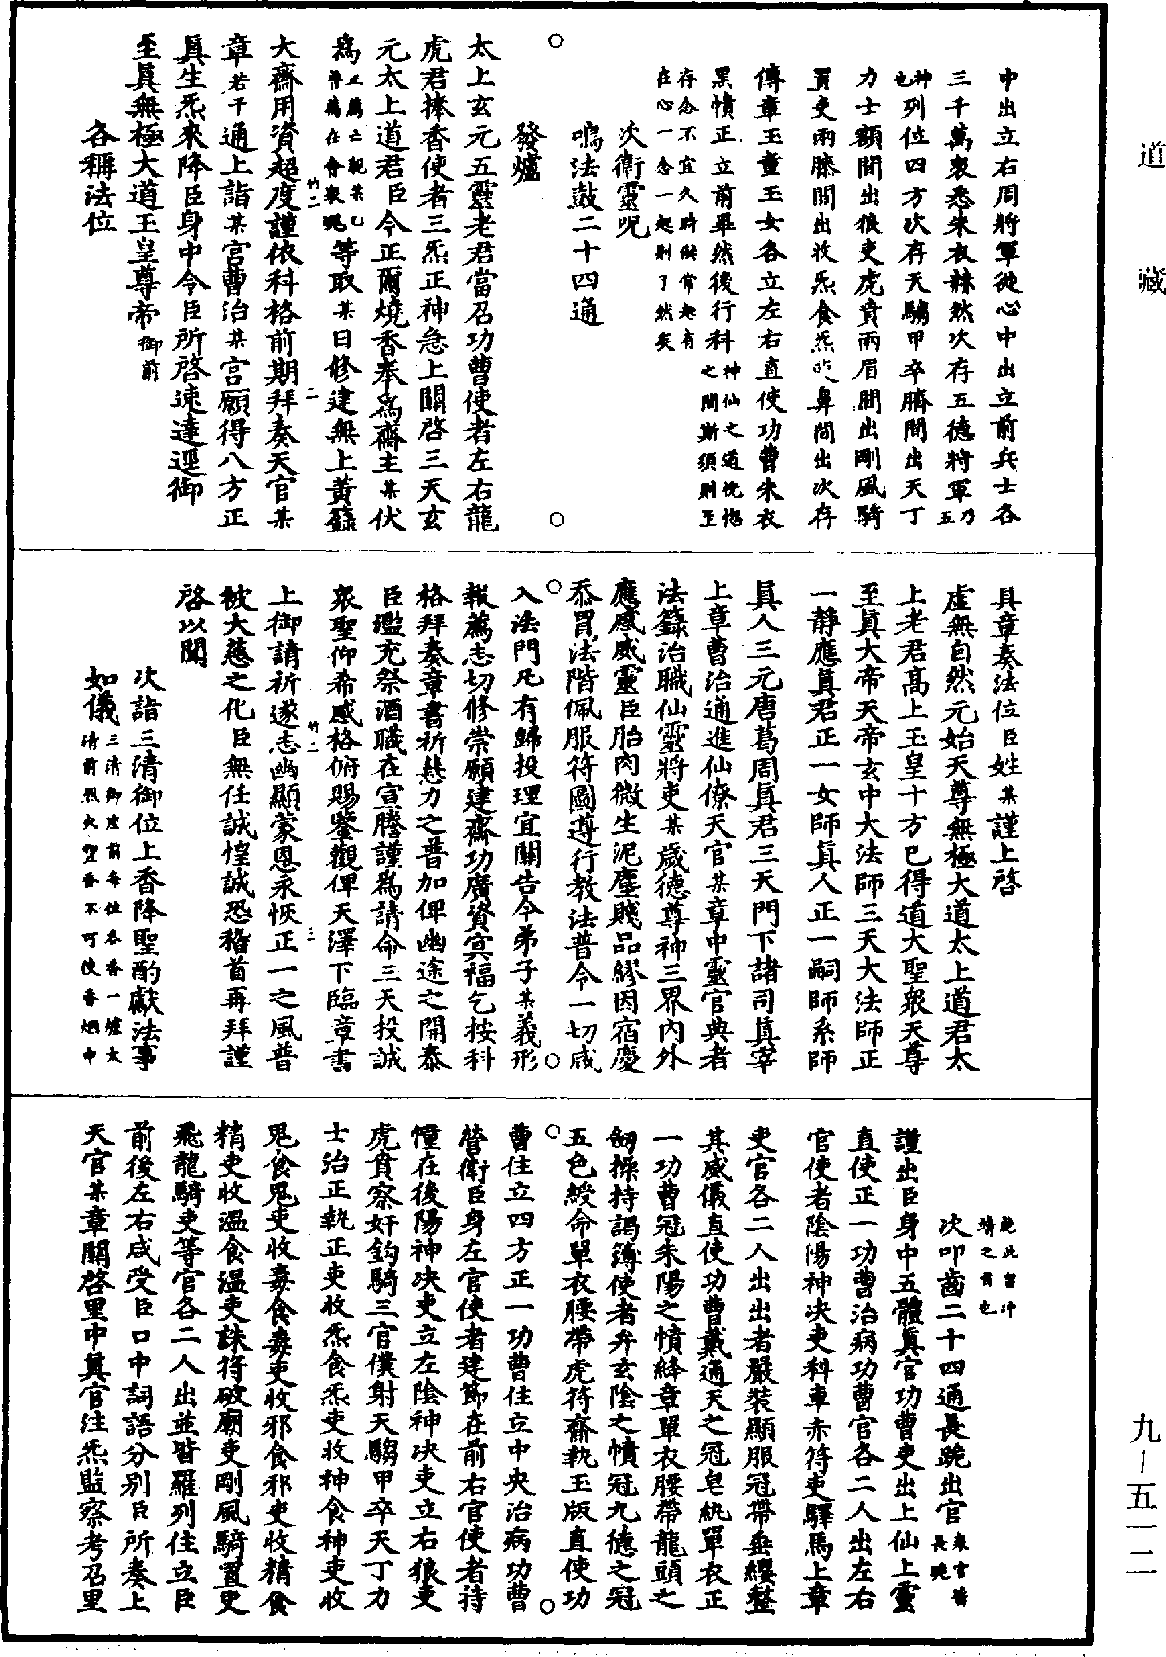 道藏
中出立右周將軍從心中出立前兵士各
三千萬衆悉朱衣赫然次存五德將軍乃五
神也列位四方次存天騶甲卒臍間出天丁
力士額間出狼吏虎賁兩眉間出剛風騎
置吏兩膝間出收炁食炁吏鼻間出次存
傳章玉童玉女各立左右直使功曹朱衣
黑幘正立前畢然後行科神仙之道恍惚之間斯須則至
存念不宜久時但常起有在心一念一起則了然矣
次衛靈呪
鳴法鼓二十四通
發爐
太上玄元五靈老君當召功曹使者左右龍
虎君捧香使者三炁正神急上關啓三天玄
元太上道君臣今正爾燒香奉爲齋主某伏
爲正薦亡親某乙普薦在會衆魂等取某日修建無上黃籙
大齋用資超度謹依科格前期拜奏天官某
章若干通上詣某宮曹治某宮願得八方正
眞生炁來降臣身中令臣所啓速達逕御
至眞無極大道玉皇尊帝御前
各稱法位
具章奏法位臣姓某謹上啓
虛無自然元始天尊無極大道太上道君太
上老君高上玉皇十方已得道大聖衆天尊
至眞大帝天帝玄中大法師三天大法師正
一靜應眞君正一女師眞人正一嗣師系師
眞人三元唐葛周眞君三天門下諸司眞宰
上章曹治通進仙僚天官某章中靈官典者
法籙治職仙靈將吏某歲德尊神三界內外
應感威靈臣胎肉微生泥塵賤品繆因宿慶
忝冒法階佩服符圖遵行教法普令一切咸
入法門凡有歸投理宜關告今弟子某義形
報薦志切修崇願建齋功廣資冥福乞按科
格拜奏章書祈慈力之普加俾幽途之開泰
臣濫充祭酒職在宣騰謹爲請命三天投誠
衆聖仰希感格俯賜鑒觀俾天澤下臨章書
上御請祈遂志幽顯蒙恩永恢正一之風普
被大慈之化臣無任誠惶誠恐稽首再拜謹
啓以聞
次詣三清御位上香降聖酌獻法事
如儀三清御座前每位各香一爐太清前烈火聖香不可使香烟中
絶此當净靖之前也
次叩齒二十四通長跪出官衆官皆長跪
謹出臣身中五體眞官功曹吏出上仙上靈
直使正一功曹治病功曹官各二人出左右
官使者陰陽神决吏科車赤符吏驛馬上章
吏官各二人出出者嚴裝顯服冠帶垂纓整
其威儀直使功曹戴通天之冠皂紈單衣正
一功曹冠朱陽之幘絳章單衣腰帶龍頭之
劒操持謁簿使者弁玄陰之幘冠九德之冠
五色綬命單衣腰帶虎符齎執玉版直使功
曹住立四方正一功曹住立中央治病功曹
營衛臣身左官使者建節在前右官使者持
幢在後陽神决吏立左陰神决吏立右狼吏
虎賁察奸鈎騎三官僕射天騶甲卒天丁力
士治正執正吏收炁食炁吏收神食神吏收
鬼食鬼吏收毒食毒吏收邪食邪吏收精食
精吏收溫食溫吏誅符破廟吏剛風騎置吏
飛龍騎吏等官各二人出並皆羅列住立臣
前後左右咸受臣口中詞語分別臣所奏上
天官某章關啓里中眞官注炁監察考召里
九—五一二